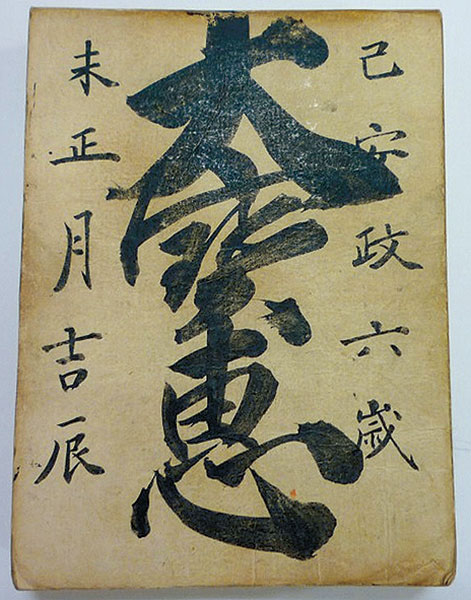 己安政六歳
大寶恵
未正月吉辰